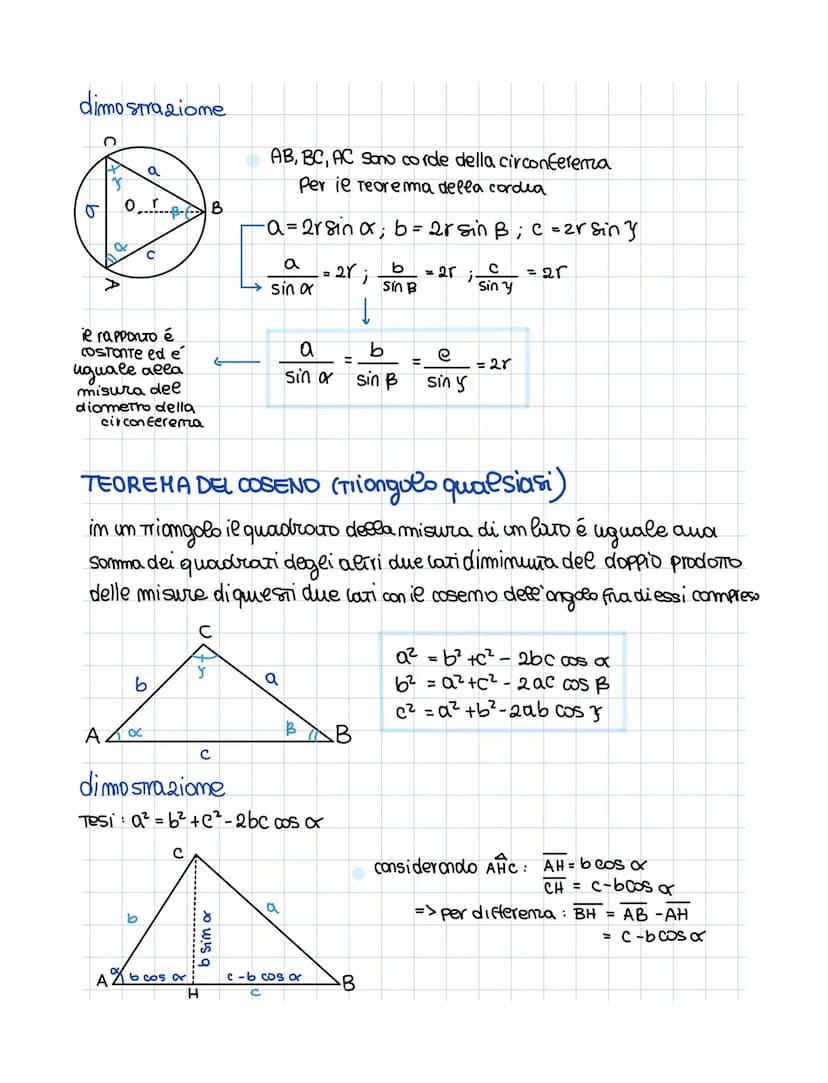 dimostrazione
C
a
γ
O r β B
b
α
c
A
AB, BC, AC sono corde della circonferenza
Per il teorema della corda
a = 2r sin α ; b = 2r sin β ; c = 2r sin γ
a/sin α = 2r ; b/sin β = 2r ; c/sin γ = 2r
il rapporto é
costante ed e´
uguale alla
misura del
diametro della
circonferenza
a/sin α = b/sin β = c/sin γ = 2r
TEOREMA DEL COSENO (triangolo qualsiasi)
in un triangolo il quadrato della misura di un lato é uguale alla
somma dei quadrati degli altri due lati diminuita del doppio prodotto
delle misure di questi due lati con il coseno dell'angolo fra di essi compreso
C
γ
b a
A α β B
c
a² = b² + c² - 2bc cos α
b² = a² + c² - 2ac cos β
c² = a² + b² - 2ab cos γ
dimostrazione
Tesi : a² = b² + c² - 2bc cos α
C
b b sin α a
A α b cos α c - b cos α B
H c
considerando AĤC : A̅H̅ = b cos α
C̅H̅ = c - b cos α
=> per differenza : B̅H̅ = A̅B̅ - A̅H̅
= c - b cos α